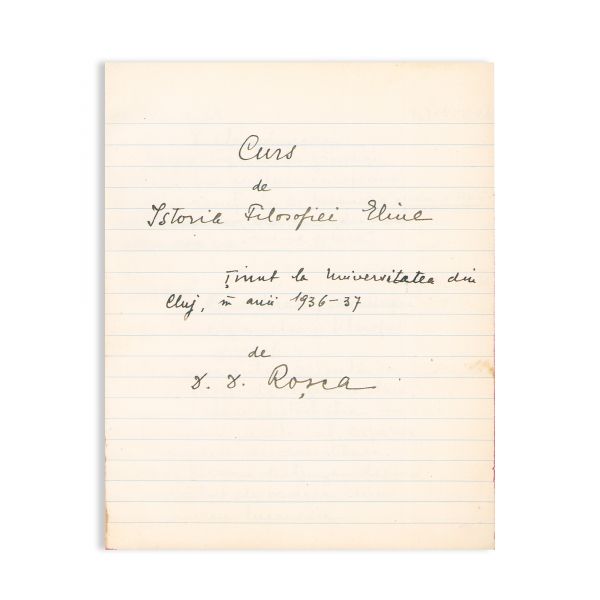 Curs
de
Istoria Filosofiei Eline
Ținut la Universitatea din
Cluj, în anii 1936-37
de
D. D. Roșca